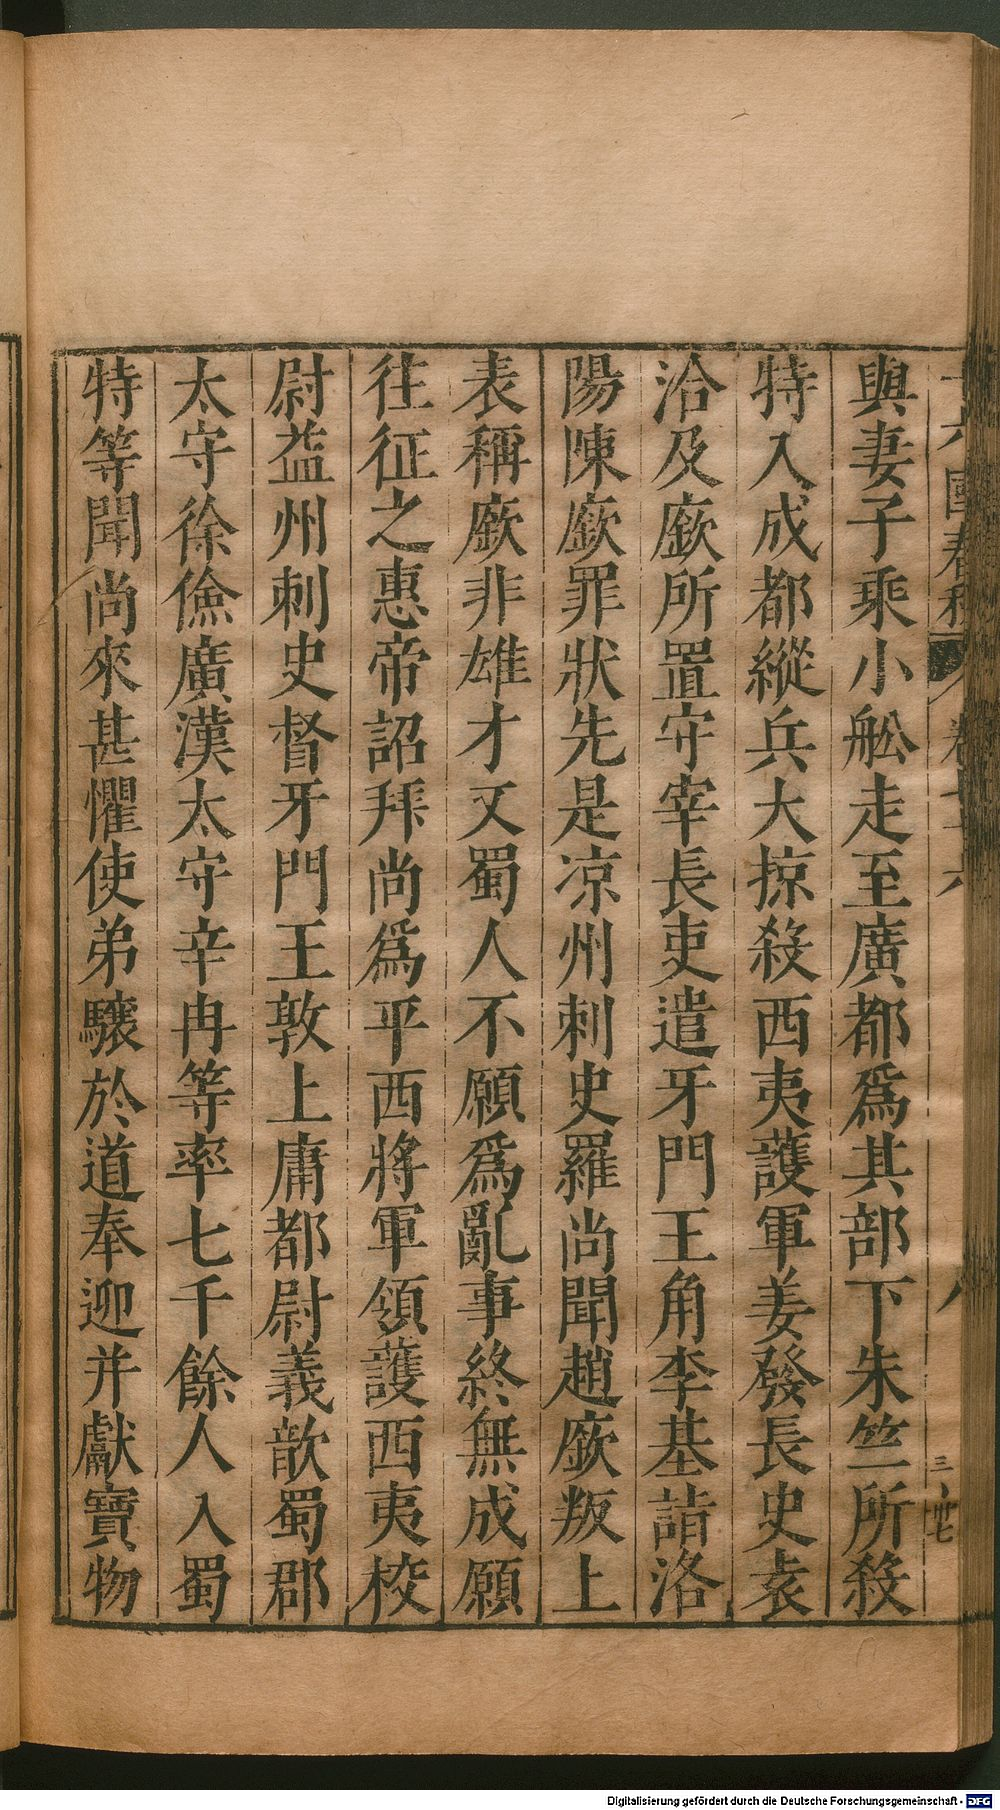 與妻子乘小舩走至廣都爲其部下朱竺所殺
特入成都縱兵大掠殺西夷護軍姜發長史袁
洽及廞所置守宰長吏遣牙門王角李基詣洛
陽陳廞罪狀先是凉州刺史羅尚聞趙廞叛上
表稱廞非雄才又蜀人不願爲亂事終無成願
往征之惠帝詔拜尚爲平西將軍領護西夷校
尉益州刺史督牙門王敦上庸都尉義歆蜀郡
太守徐儉廣漢太守辛冉等率七千餘人入蜀
特等聞尚來甚懼使弟驤於道奉迎并獻寶物
Digitalisierung gefördert durch die Deutsche Forschungsgemeinschaft - DFG